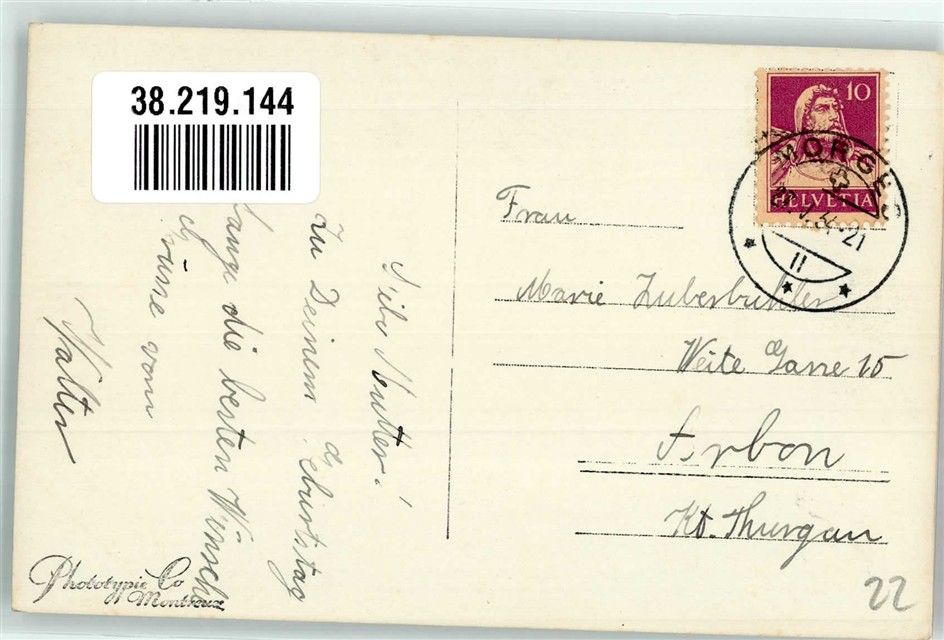 38.219.144
10
HELVETIA
MORGES
II
Frau
Marie Zuberbühler
Weite Gasse 15
Arbon
Kt. Thurgau
Liebe Mutter!
Zu Deinem Geburtstag
sange die besten Wünsche
Grüsse vom
Walter
Phototypie Co
Montreux
22